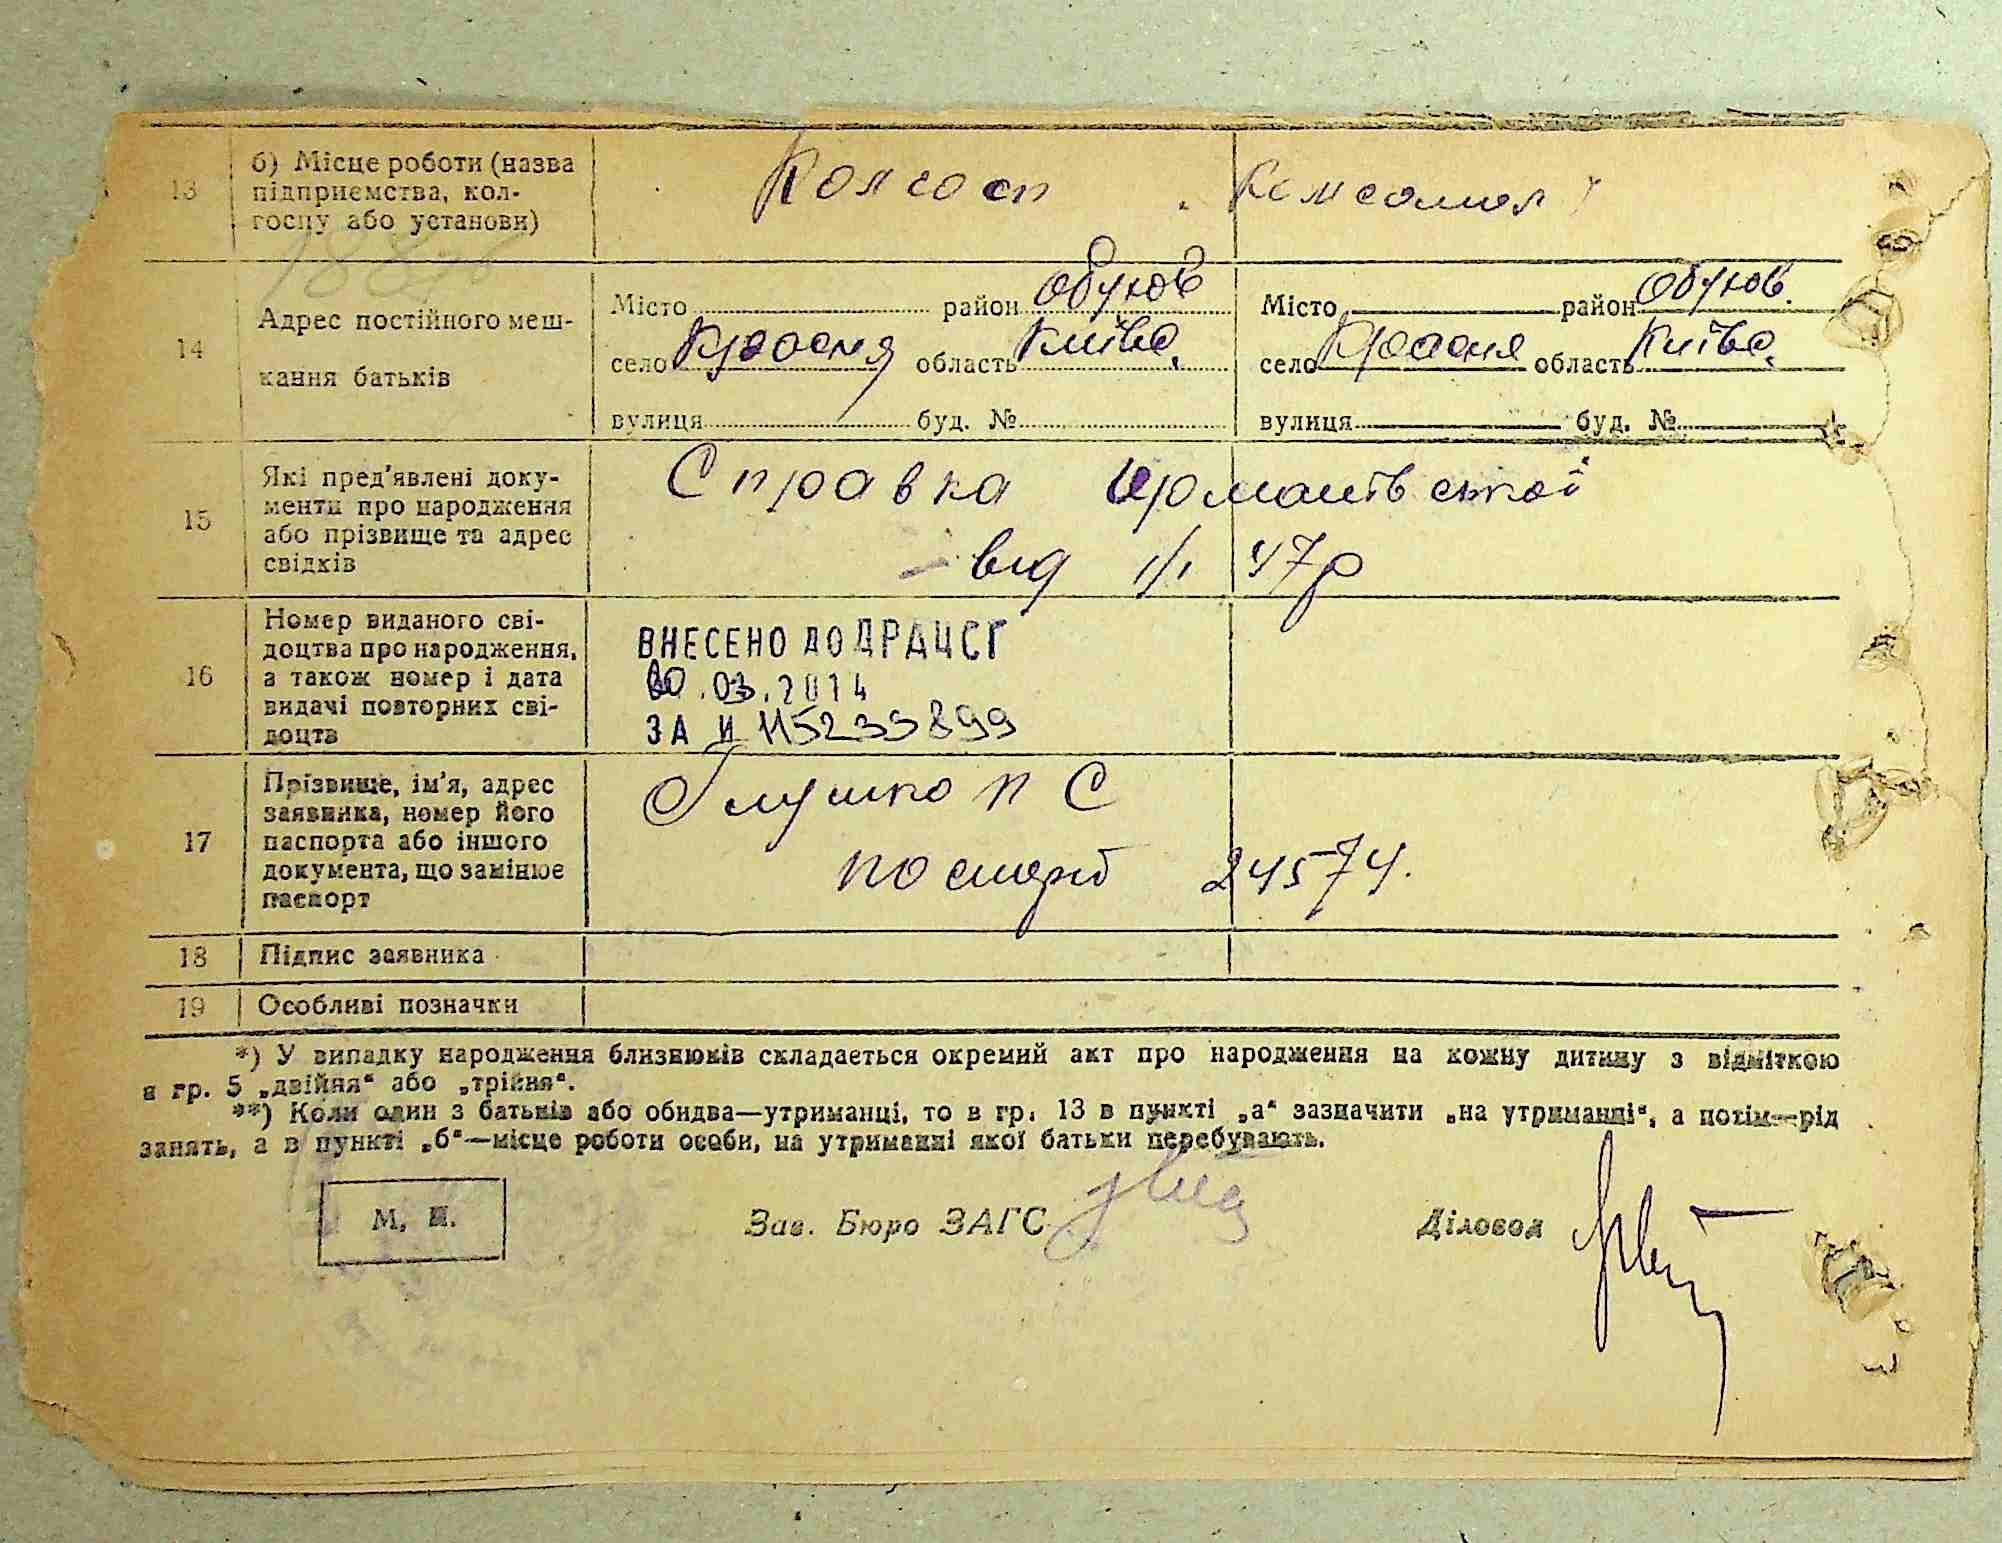 13
б) Місце роботи (назва
підприємства, кол-
госпу або установи)
Колгосп „Комсомол"
14
Адрес постійного меш-
кання батьків
Місто район Обухов
село Красня область Київс.
вулиця буд. №
Місто район Обухов.
село Красня область Київс.
вулиця буд. №
15
Які пред'явлені доку-
менти про народження
або прізвище та адрес
свідків
Справка
від 1/1 47р
16
Номер виданого сві-
доцтва про народження,
а також номер і дата
видачі повторних сві-
доцтв
ВНЕСЕНО ДО ДРАЦСГ
.03.2014
ЗА И 115233899
17
Прізвище, ім'я, адрес
заявника, номер його
паспорта або іншого
документа, що замінює
паспорт
Глушко П С
24574.
18
Підпис заявника
19
Особливі позначки
*) У випадку народження близнюків складається окремий акт про народження на кожну дитину з відміткою
в гр. 5 „двійня" або „трійня".
**) Коли один з батьків або обидва—утриманці, то в гр. 13 в пункті „а" зазначити „на утриманні", а потім—рід
занять, а в пункті „б"—місце роботи особи, на утриманні якої батьки перебувають.
М. П.
Зав. Бюро ЗАГС
Діловод